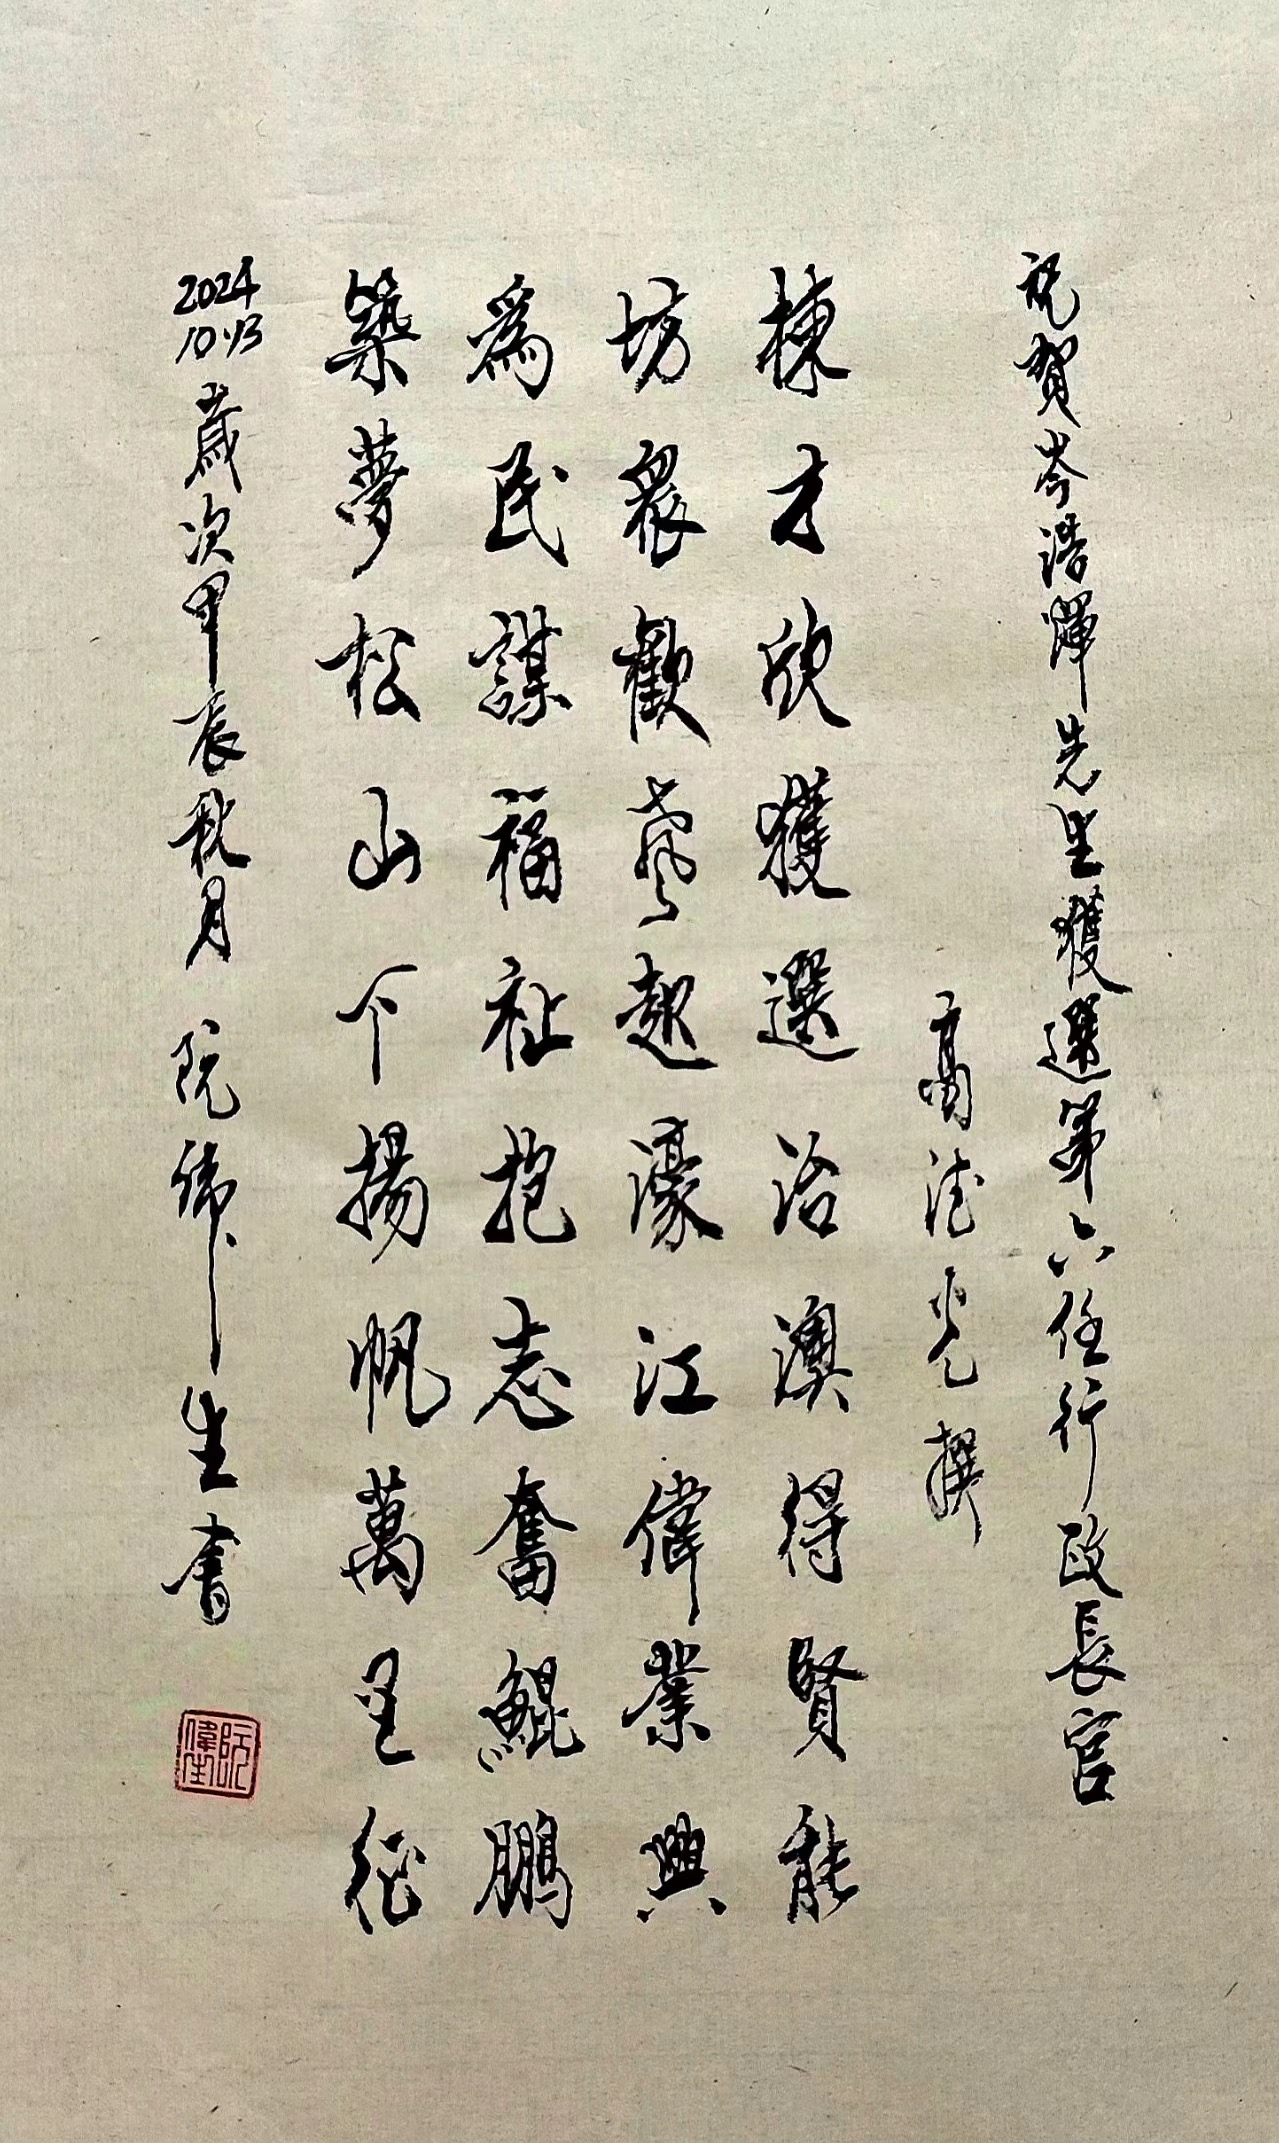 祝賀岑浩輝先生獲選第六任行政長官
高德光撰
棟才欣獲選治澳得賢能
坊眾歡聲起濠江偉業興
為民謀福祉抱志奮鯤鵬
築夢松山下揚帆萬里征
2024
10.13
歲次甲辰秋月 阮偉生書
阮偉生